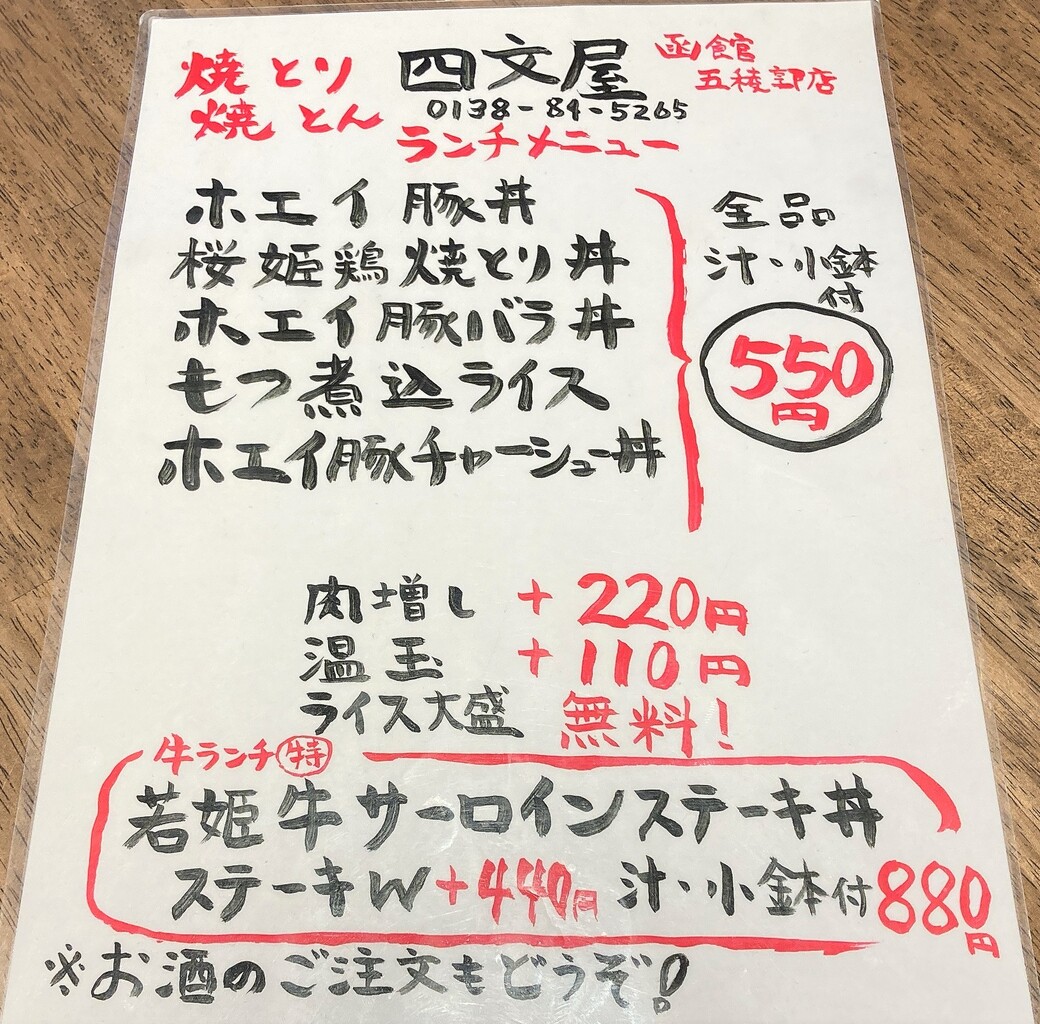 焼とり 四文屋 函館
焼とん 0138-84-5265 五稜郭店
ランチメニュー
ホエイ豚丼
桜姫鶏焼とり丼
ホエイ豚バラ丼
もつ煮込ライス
ホエイ豚チャーシュー丼
全品
汁・小鉢
付
550
円
肉増し +220円
温玉 +110円
ライス大盛 無料!
牛ランチ 特
若姫牛サーロインステーキ丼
ステーキW+440円 汁・小鉢付880円
※お酒のご注文もどうぞ!